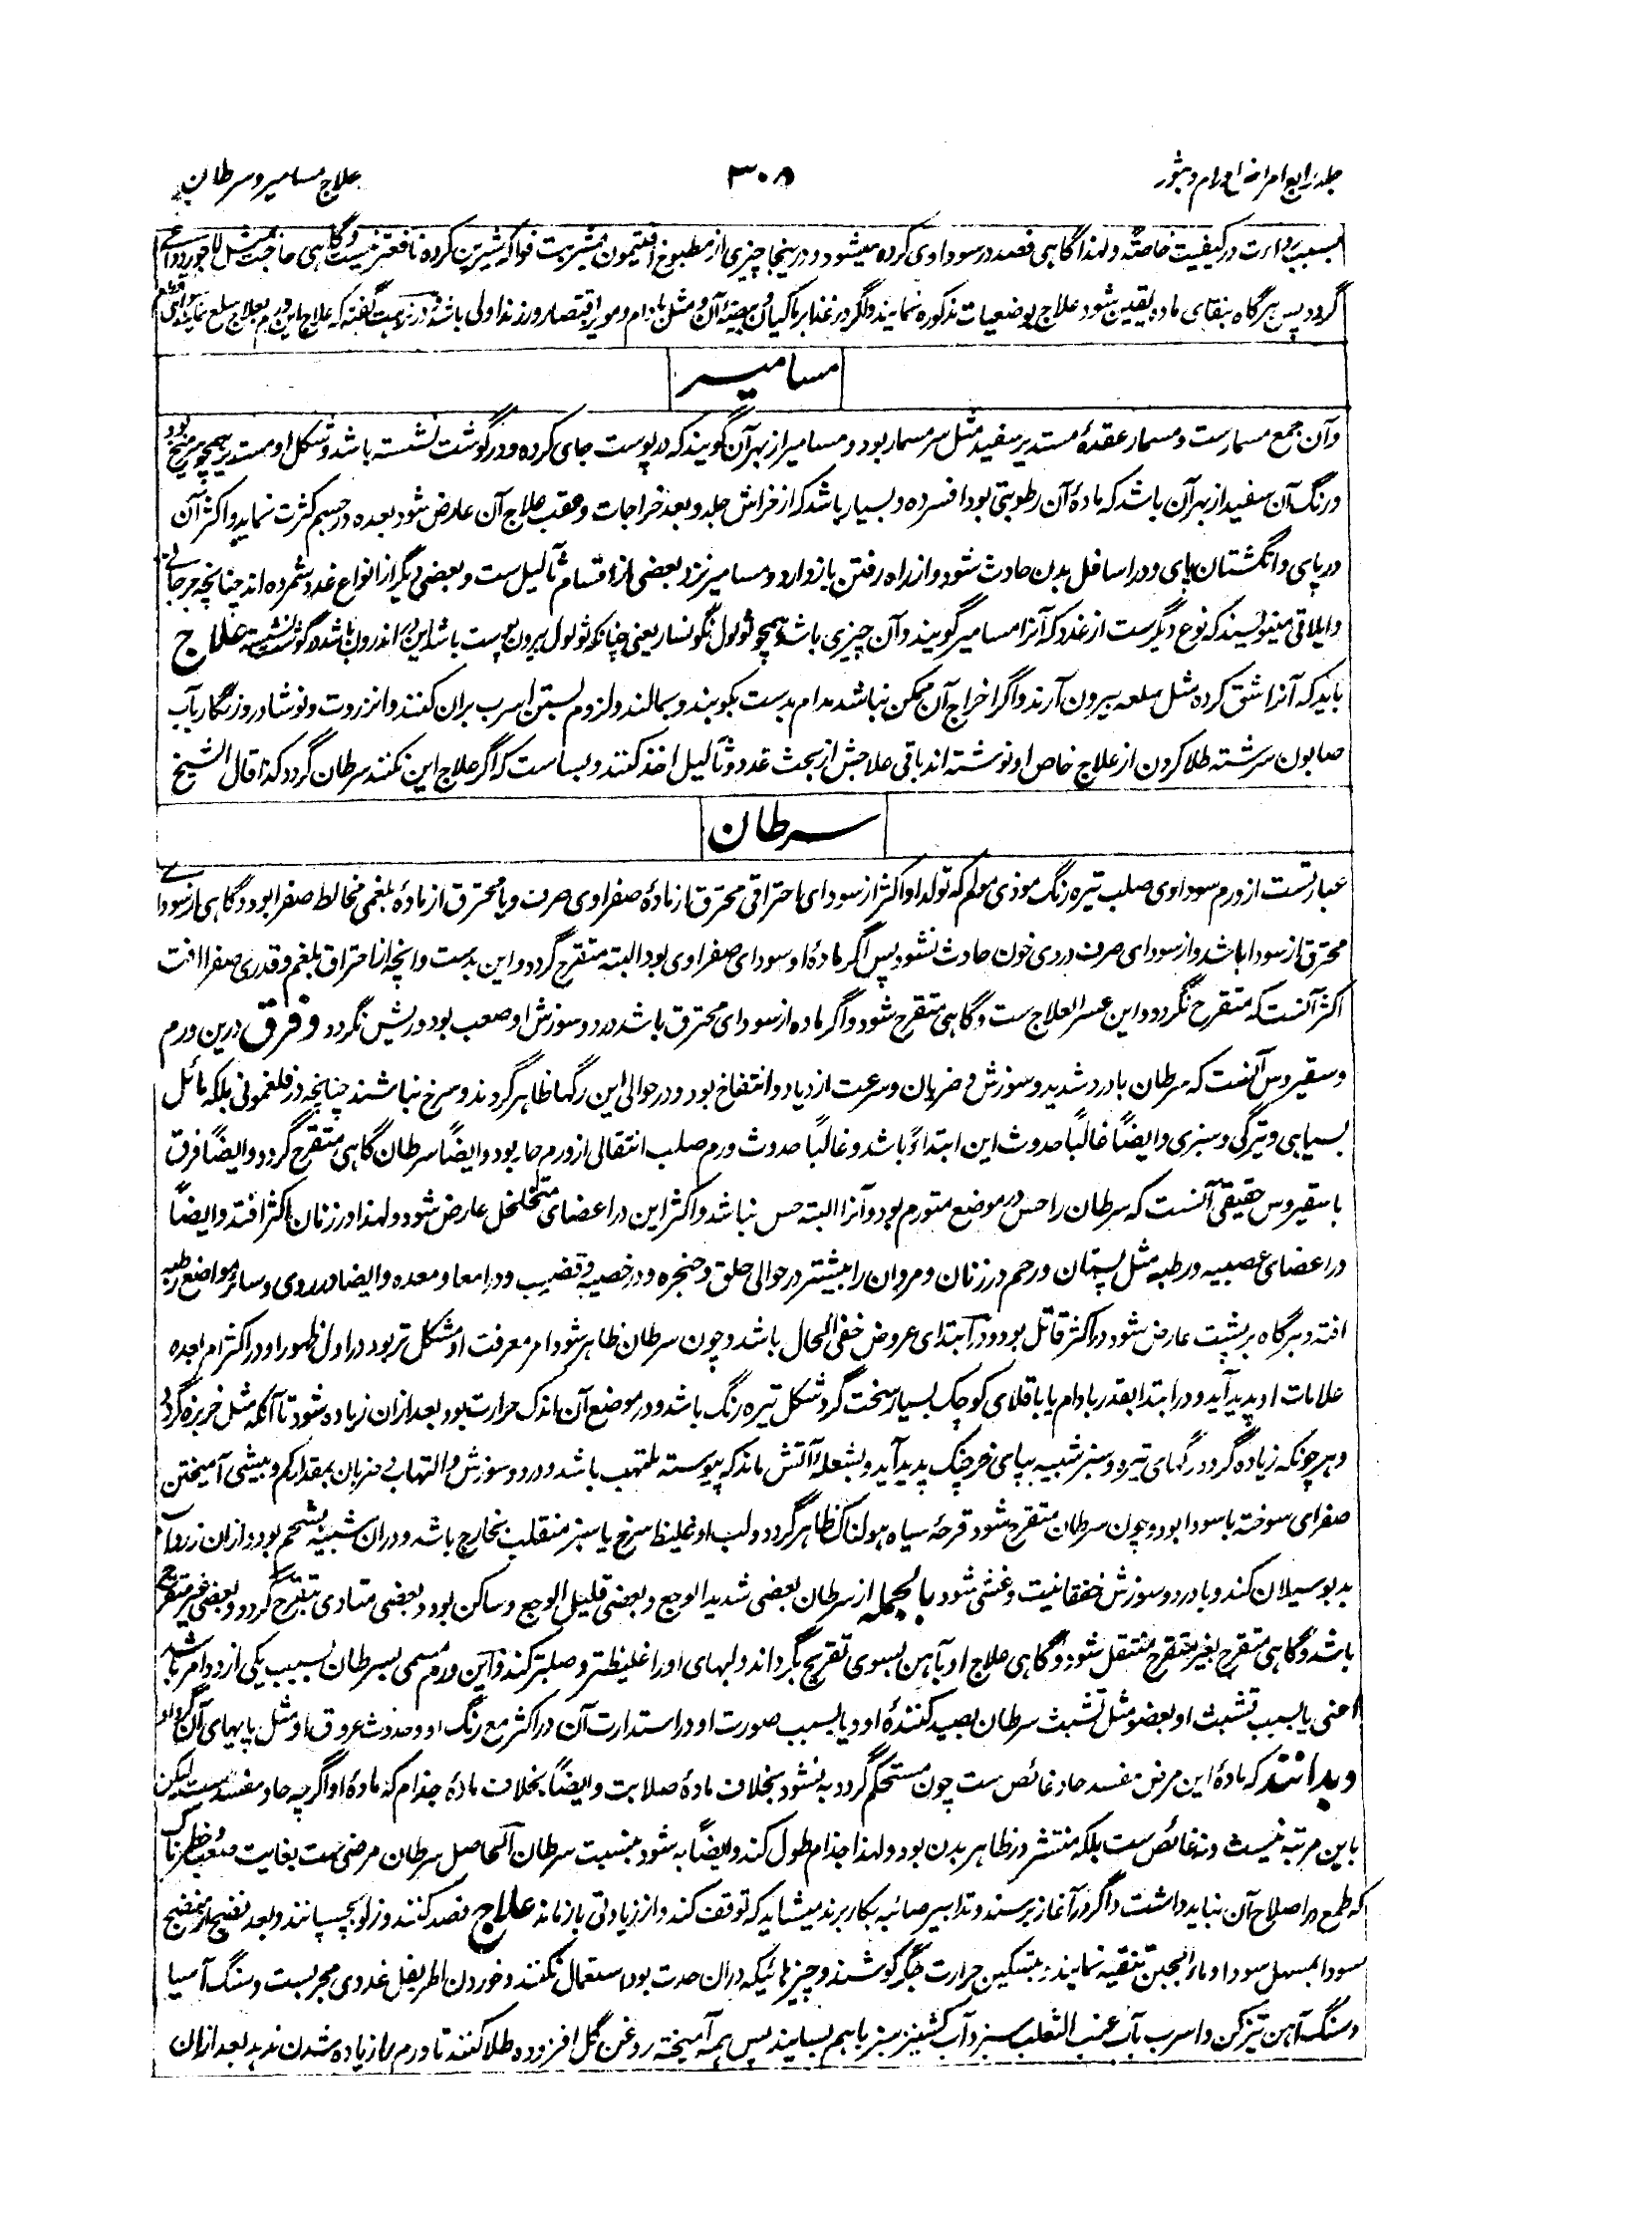 جلد رابع امراض اورام و بثور
۳۰۸
علاج مسامیر و سرطان
بسبب رداءت در کیفیت خاصةً ولهذا گاهی فصد در سوداوی کرده میشود و درینجا چیزی از مطبوخ افتیمون بشربت فواکه شیرین کرده نافعتر نیست و گاهی حاجت بمثل لاجورد
گردد پس هرگاه بنقای ماده یقین شود علاج بوضعیات مذکوره نمایند و اگر در غذا بر ماکیان و بیضهٔ آن و مثل بادام و مویز اقتصار ورزند اولی باشد گفته که علاج این ورم بعلاج سلع نمایند
مسامیر
و آن جمع مسمارست و مسمار عقدهٔ مستدیر سفید مثل سر مسمار بود و مسامیر از بهر آن گویند که در پوست جای کرده و در گوشت نشسته باشد و شکل او مستدیر همچو سر میخ بود
و رنگ آن سفید از بهر آن باشد که مادهٔ آن رطوبتی بود افسرده و بسیار باشد که از خراش جلد و بعد خراجات و عقب علاج آن عارض شود بعده در جسم کثرت نماید و اکثر آن
در پای و انگشتان پای و در اسافل بدن حادث شود و از راه رفتن باز دارد و مسامیر نزد بعضی از اقسام ثآلیل ست و بعضی دیگر از انواع غدد شمرده اند چنانچه جرجانی
و ایلاقی مینویسند که نوع دیگرست از غدد که آنرا مسامیر گویند و آن چیزی باشد همچو ثولول نگونسار یعنی چنانکه ثولول بیرون پوست باشد این در اندرون باشد در گوشت نشسته علاج
باید که آنرا شق کرده مثل سلعه بیرون آرند و اگر اخراج آن ممکن نباشد مدام بدست بکوبند و بمالند و لزوم بستن اسرب بران کنند و انزروت و نوشادر و زنگار بآب
صابون سرشته طلا کردن از علاج خاص او نوشته اند باقی علاجش از بحث غدد و ثآلیل اخذ کنند و بساست که اگر علاج این نکنند سرطان گردد کذا قال الشیخ
سرطان
عبارتست از ورم سوداوی صلب تیره رنگ موذی مولم که تولد او اکثر از سودای احتراقی محترق از مادهٔ صفراوی صرف و یا محترق از مادهٔ بلغمی مخالط صفرا بود و گاهی از سودای
محترق از سودا باشد و از سودای صرف دردی خون حادث نشود پس اگر مادهٔ او سودای صفراوی بود البته متقرح گردد و این بدست و آنچه از احتراق بلغم و قدری صفرا افتد
اکثر آنست که متقرح نگردد و این عسر العلاج ست و گاهی متقرح شود و اگر ماده از سودای محترق باشد درد و سوزش او صعب بود و ریش نگردد و فرق درین ورم
و سقیروس آنست که سرطان با درد شدید و سوزش و ضربان و سرعت ازدیاد و انتفاخ بود و در حوالی این رگها ظاهر گردند و سرخ نباشند چنانچه در فلغمونی بلکه مائل
بسیاهی و تیرگی و سبزی و ایضاً غالباً حدوث این ابتداءً باشد و غالباً حدوث ورم صلب انتقالی از ورم حار بود و ایضاً سرطان گاهی متقرح گردد و ایضاً فرق
با سقیروس حقیقی آنست که سرطان را حس در موضع متورم بود و آنرا البته حس نباشد و اکثر این در اعضای متخلخل عارض شود ولهذا در زنان اکثر افتد و ایضاً
در اعضای عصبیه و رطبه مثل پستان و رحم در زنان و مردان را بیشتر در حوالی حلق و حنجره و در خصیه و قضیب و در امعا و معده و ایضاً در روی و سائر مواضع رطبه
افتد و هرگاه بر پشت عارض شود در اکثر قاتل بود و در ابتدای عروض خفی الحال باشد و چون سرطان ظاهر شود امر معرفت او مشکل تر بود در اول ظهور او در اکثر امر بعده
علامات او پدید آید و در ابتدا بقدر بادام یا باقلای کوچک بسیار سخت گرد شکل تیره رنگ باشد و در موضع آن اندک حرارت بود بعد ازان زیاده شود تا آنکه مثل خربزه گردد
و هر چونکه زیاده گردد رگهای تیره و سبز شبیه بپای خرچنگ پدید آید و بشعلهٔ آتش ماند که پیوسته ملتهب باشد و درد و سوزش و التهاب و ضربان بمقدار کم و بیشی آمیختن
صفرای سوخته با سودا بود و چون سرطان متقرح شود قرحهٔ سیاه هولناک ظاهر گردد و لب او غلیظ سرخ یا سبز منقلب بخارج باشد و دران شبیه بشحم بود و ازان زرداب
بدبو سیلان کند و با درد و سوزش خفقانیت و غشی شود بالجمله از سرطان بعضی شدید الوجع و بعضی قلیل الوجع و ساکن بود و بعضی متادی بتقرح گردد و بعضی غیر متقرح
باشد و گاهی متقرح بغیر متقرح منتقل شود و گاهی علاج او بآهن بسوی تقریح بگرداند و لبهای او را غلیظتر و صلبتر کند و این ورم مسمی بسرطان بسبب یکی از دو امر باشد
اعنی یا بسبب تشبث او بعضو مثل تشبث سرطان بصید کنندهٔ او و یا بسبب صورت او در استدارت آن در اکثر مع رنگ او و حدوث عروق او مثل پایهای آن گرد او
و بدانند که مادهٔ این مرض مفسد حاد غائص ست چون مستحکم گردد به نشود بخلاف مادهٔ صلابت و ایضاً بخلاف مادهٔ جذام که مادهٔ او اگرچه حاد مفسد ست لیکن
باین مرتبه نیست و نه غائص ست بلکه منتشر در ظاهر بدن بود ولهذا جذام طول کند و ایضاً به شود بنسبت سرطان الحاصل سرطان مرضی ست بغایت صعب خطرناک
که طمع در اصلاح آن نباید داشت و اگر در آغاز برسند و تدابیر صائبه بکار برند میشاید که توقف کند و از زیادتی باز ماند علاج فصد کنند و زلو بچسپانند و بعد نضج از منضج
سودا بمسهل سودا و ماء الجبن تنقیه نمایند و بتسکین حرارت جگر کوشند و چیزهائیکه دران حدت بود استعمال نکنند و خوردن اطریفل غددی مجربست و سنگ آسیا
و سنگ آهن تیز کن و اسرب بآب عنب الثعلب سبز و آب کشنیز سبز باهم بسایند پس همه آمیخته روغن گل افزوده طلا کنند تا ورم را زیاده شدن ندهد بعد ازان